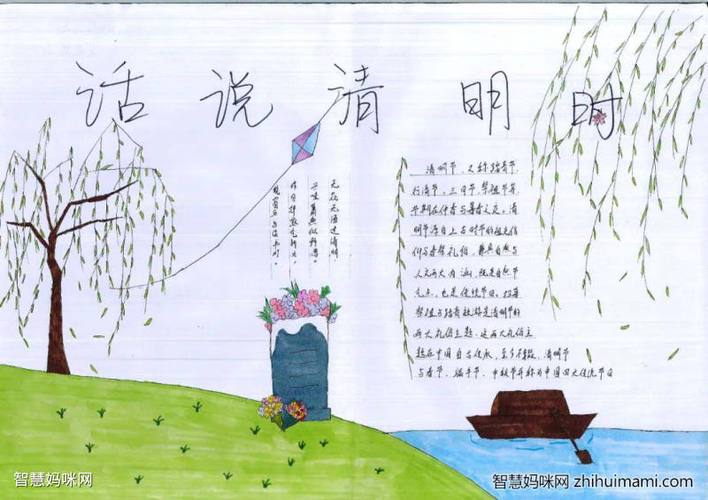 话说清明时
无花无酒过清明
兴味萧然似野僧。
昨日邻家乞新火,
晓窗分与读书灯。
清明节,又称踏青节、
行清节、三月节、祭祖节等,
节期在仲春与暮春之交。清
明节源自上古时代的祖先信
仰与春祭礼俗,兼具自然与
人文两大内涵,既是自然节
气点,也是传统节日。扫墓
祭祖与踏青郊游是清明节的
两大礼俗主题,这两大礼俗主
题在中国自古传承,至今不辍。清明节
与春节、端午节、中秋节并称为中国四大传统节日
智慧妈咪网
智慧妈咪网 zhihuimami.com